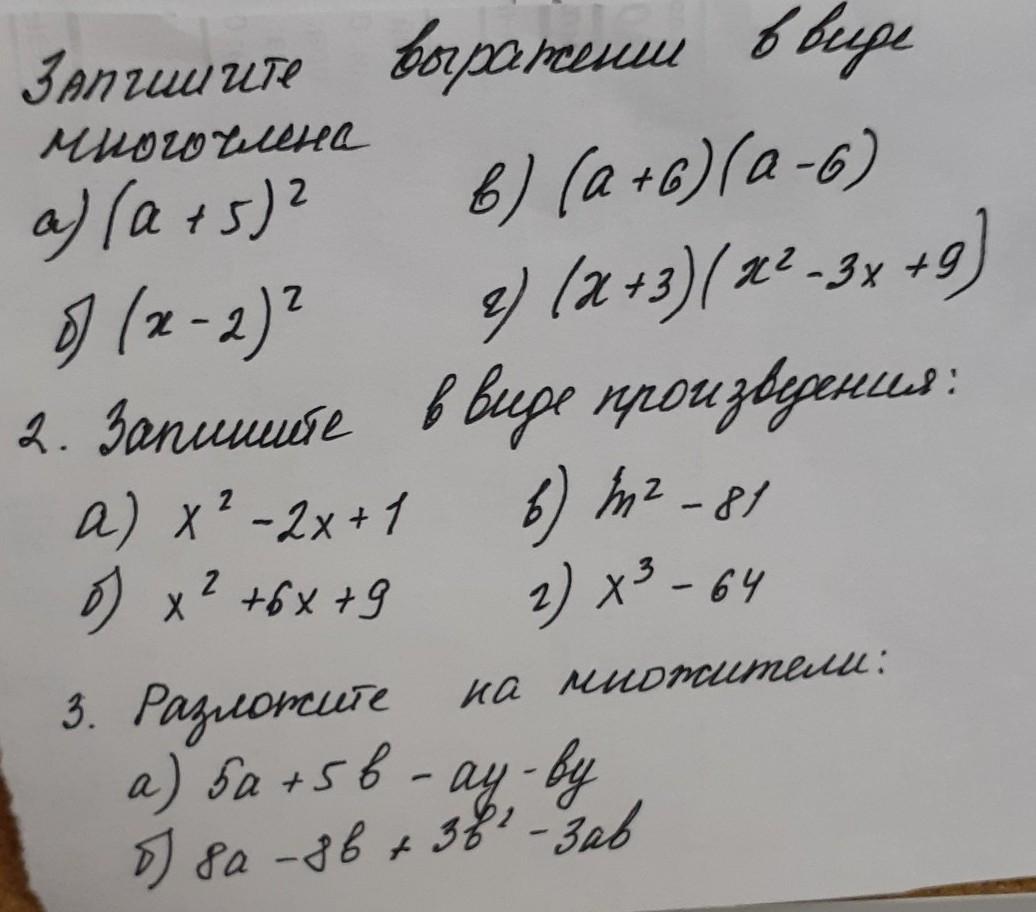 Запишите выражении в виде
многочлена
а) (a + 5)² в) (a + 6)(a - 6)
б) (x - 2)² г) (x + 3)(x² - 3x + 9)
2. Запишите в виде произведения:
а) x² - 2x + 1 в) m² - 81
б) x² + 6x + 9 г) x³ - 64
3. Разложите на множители:
а) 5a + 5b - ay - by
б) 8a - 8b + 3b² - 3ab